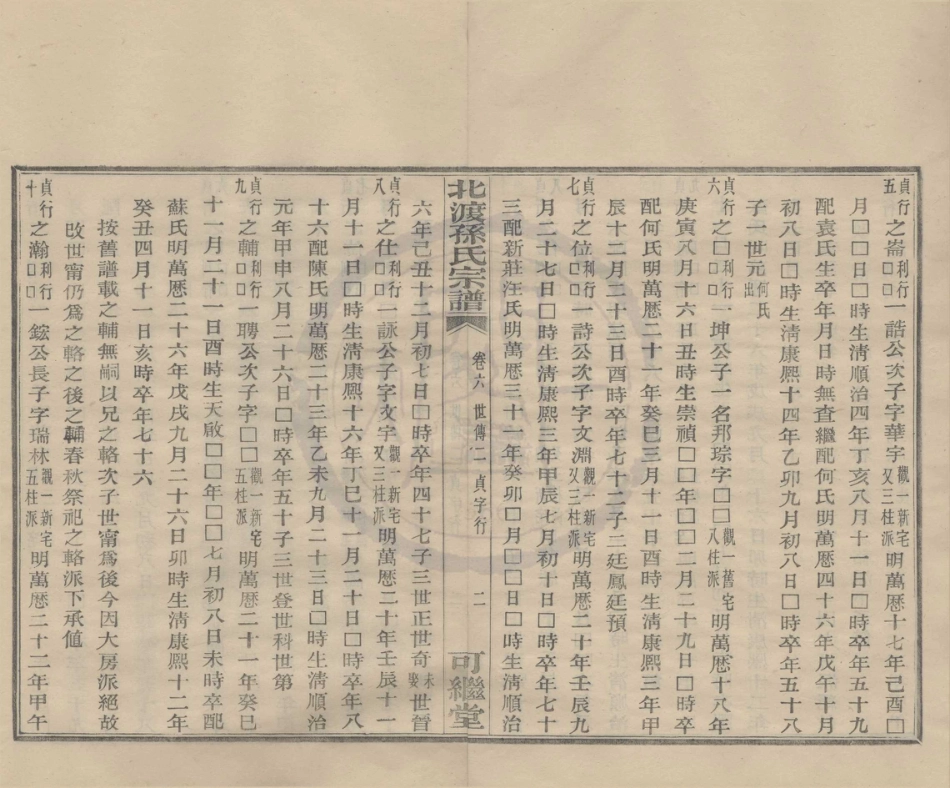 貞行五之崙利行□□一誥公次子字華宇觀一新宅又三柱派明萬厯十七年己酉□
月□□日□時生淸順治四年丁亥八月十一日□時卒年五十九
配袁氏生卒年月日時無查繼配何氏明萬厯四十六年戊午十月
初八日□時生淸康熙十四年乙卯九月初八日□時卒年五十八
子一世元何氏出
貞行六之□利行□□一坤公子一名邦琮字□□觀一舊宅八柱派明萬厯十八年
庚寅八月十六日丑時生崇禎□□年□□二月二十九日□時卒
配何氏明萬厯二十一年癸巳三月十一日酉時生淸康熙三年甲
辰十二月二十三日酉時卒年七十二子二廷鳳廷預
貞行七之位利行□□一詩公次子字文淵觀一新宅又三柱派明萬厯二十年壬辰九
月二十七日□時生淸康熙三年甲辰七月初十日□時卒年七十
三配新莊汪氏明萬厯三十一年癸卯□月□□日□時生淸順治
北渡孫氏宗譜
卷六 世傳二 貞字行
二
可繼堂
六年己丑十二月初七日□時卒年四十七子三世正世奇未娶世晉
貞行八之仕利行□□一詠公子字文宇觀一新宅又三柱派明萬厯二十年壬辰十一
月十一日□時生淸康熙十六年丁巳十一月二十日□時卒年八
十六配陳氏明萬厯二十三年乙未九月二十三日□時生淸順治
元年甲申八月二十六日□時卒年五十子三世登世科世第
貞行九之輔利行□□一聘公次子字□□觀一新宅五柱派明萬厯二十一年癸巳
十一月二十一日酉時生天啟□□年□□七月初八日未時卒配
蘇氏明萬厯二十六年戊戌九月二十六日卯時生淸康熙十二年
癸丑四月十一日亥時卒年七十六
按舊譜載之輔無嗣以兄之輅次子世甯爲後今因大房派絕故
改世甯仍爲之輅之後之輔春秋祭祀之輅派下承値
貞行十之瀚利行□□一鋐公長子字瑞林觀一新宅五柱派明萬厯二十二年甲午